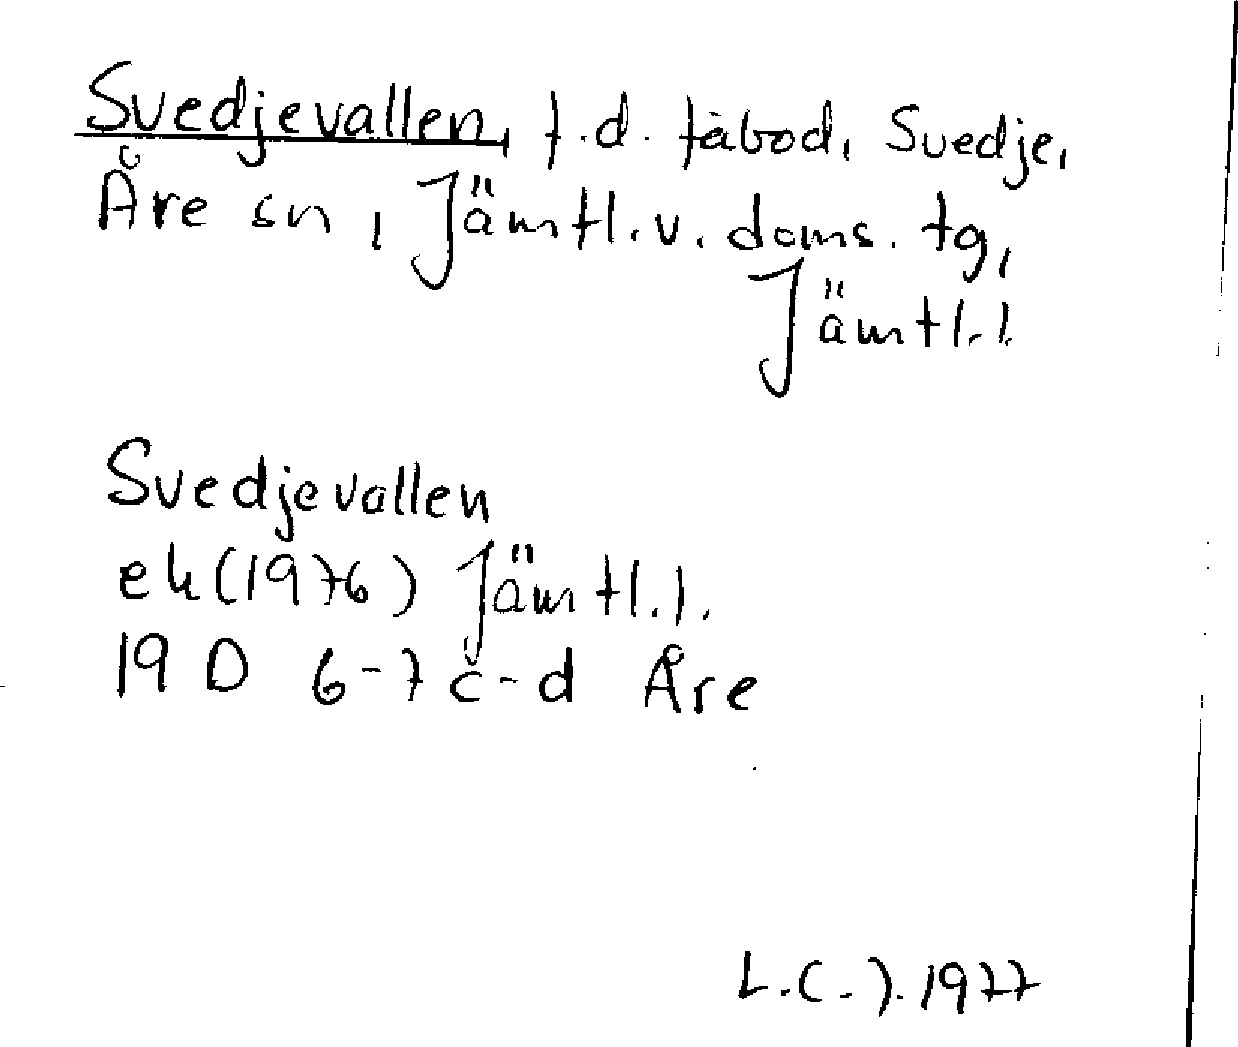 Svedjevallen, f.d. fäbod, Svedje,
Åre sn, Jämtl.v. doms. tg,
Jämtl.l.
Svedjevallen
ek(1976) Jämtl.l.
19 D 6-7 c-d Åre
L.C.J. 1977